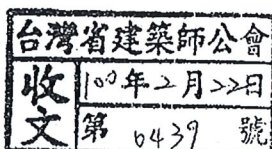 台灣省建築師公會
收文
100年2月22日
第 0439 號